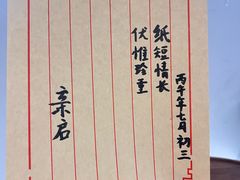 纸短情长
伏惟珍重
丙午年七月初三
亲启